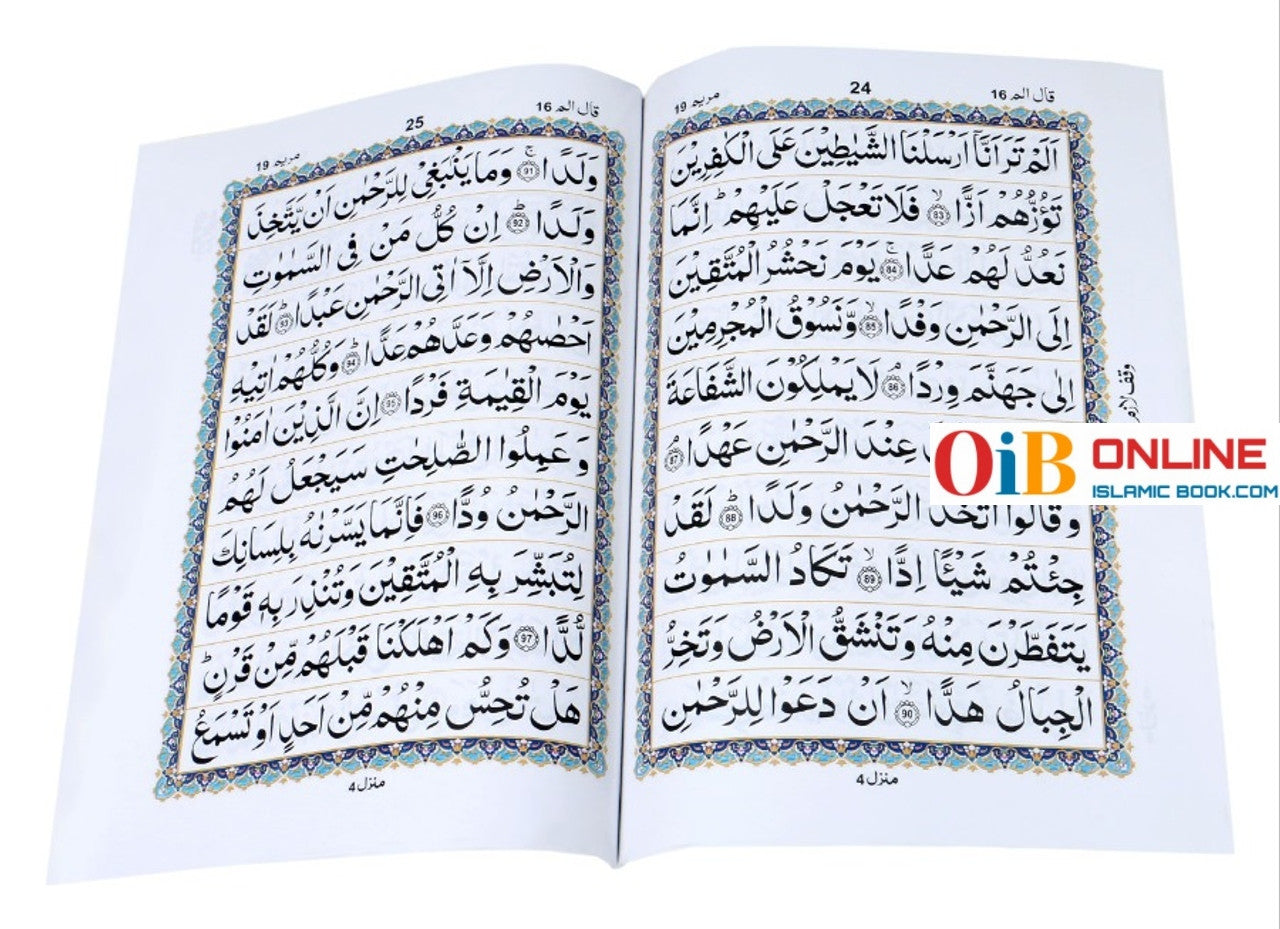 قال الم 16
24
مريم 19
اَلَمۡ تَرَ اَنَّاۤ اَرۡسَلۡنَا الشَّيٰطِيۡنَ عَلَى الۡكٰفِرِيۡنَ
تَؤُزُّهُمۡ اَزًّا ۙ‏ 83 فَلَا تَعۡجَلۡ عَلَيۡهِمۡ‌ ؕ اِنَّمَا
نَعُدُّ لَهُمۡ عَدًّا‌ ۚ‏ 84 يَوۡمَ نَحۡشُرُ الۡمُتَّقِيۡنَ
اِلَى الرَّحۡمٰنِ وَفۡدًا ۙ‏ 85 وَّنَسُوۡقُ الۡمُجۡرِمِيۡنَ
اِلٰى جَهَنَّمَ وِرۡدًا‌ ۘ‏ 86 لَا يَمۡلِكُوۡنَ الشَّفَاعَةَ
عِنۡدَ الرَّحۡمٰنِ عَهۡدًا‌ ۘ‏ 87
وَقَالُوا اتَّخَذَ الرَّحۡمٰنُ وَلَدًا ؕ‏ 88 لَقَدۡ
جِئۡتُمۡ شَيۡـًٔـا اِدًّا ۙ‏ 89 تَكَادُ السَّمٰوٰتُ
يَتَفَطَّرۡنَ مِنۡهُ وَتَنۡشَقُّ الۡاَرۡضُ وَتَخِرُّ
الۡجِبَالُ هَدًّا ۙ‏ 90 اَنۡ دَعَوۡا لِلرَّحۡمٰنِ
منزل 4
وقف لازم
قال الم 16
25
مريم 19
وَلَدًا‌ ۚ‏ 91 وَمَا يَنۡۢبَغِىۡ لِلرَّحۡمٰنِ اَنۡ يَّتَّخِذَ
وَلَدًا ؕ‏ 92 اِنۡ كُلُّ مَنۡ فِى السَّمٰوٰتِ
وَالۡاَرۡضِ اِلَّاۤ اٰتِى الرَّحۡمٰنِ عَبۡدًا ؕ‏ 93 لَقَدۡ
اَحۡصٰٮهُمۡ وَعَدَّهُمۡ عَدًّا ؕ‏ 94 وَكُلُّهُمۡ اٰتِيۡهِ
يَوۡمَ الۡقِيٰمَةِ فَرۡدًا‏ 95 اِنَّ الَّذِيۡنَ اٰمَنُوۡا
وَعَمِلُوا الصّٰلِحٰتِ سَيَجۡعَلُ لَهُمُ
الرَّحۡمٰنُ وُدًّا‏ 96 فَاِنَّمَا يَسَّرۡنٰهُ بِلِسَانِكَ
لِتُبَشِّرَ بِهِ الۡمُتَّقِيۡنَ وَتُنۡذِرَ بِهٖ قَوۡمًا
لُّدًّا‏ 97 وَكَمۡ اَهۡلَكۡنَا قَبۡلَهُمۡ مِّنۡ قَرۡنٍؕ
هَلۡ تُحِسُّ مِنۡهُمۡ مِّنۡ اَحَدٍ اَوۡ تَسۡمَعُ
منزل 4
OiB ONLINE
ISLAMIC BOOK.COM